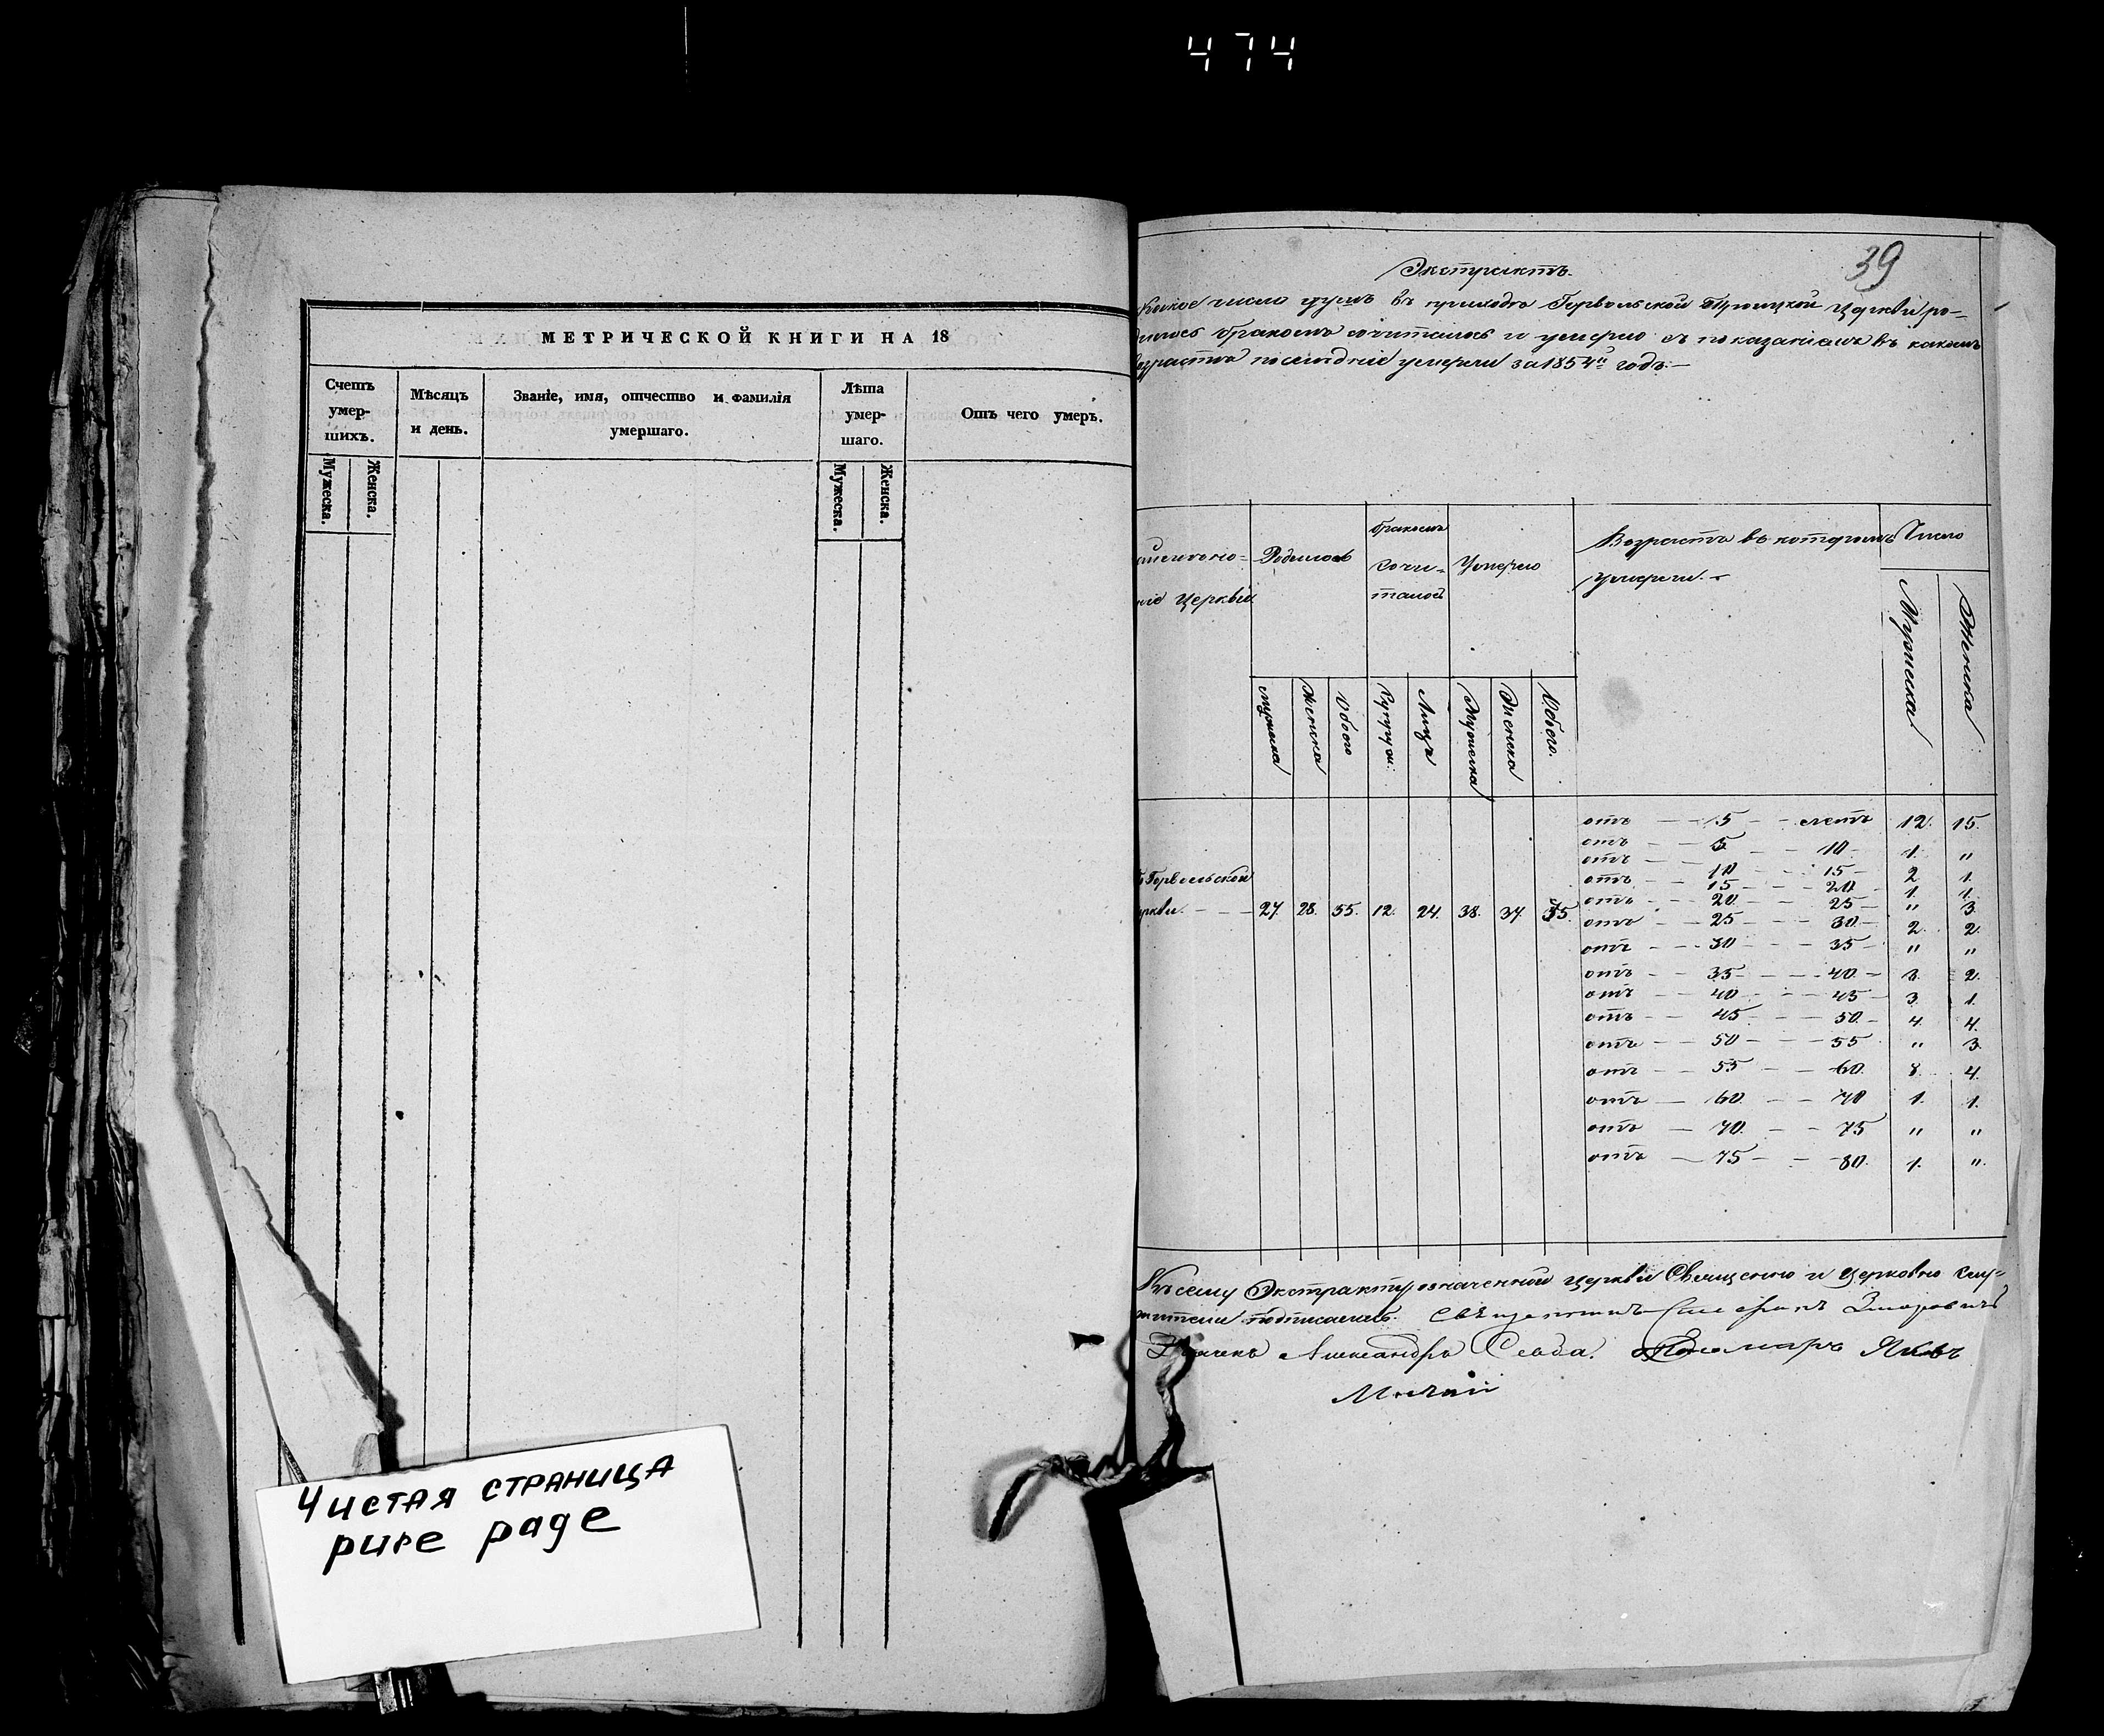 474
МЕТРИЧЕСКОЙ КНИГИ НА 18
Счетъ умер-шихъ.
Мѣсяцъ и день.
Званіе, имя, отчество и фамилія умершаго.
Лѣта умер-шаго.
Отъ чего умеръ.
Мужеска.
Женска.
Мужеска.
Женска.
Чистая страница
pure page
39
Экстрактъ.
число душъ въ приходѣ Горвольской Троицкой Церкви ро-
бракомъ сочиталось и умерло съ показаніемъ въ какомъ
послѣдніе умерли за 1854й годъ.—
Родилось
бракомъ сочи-талось
Умерло
Возрастъ въ которомъ умерли.
Число
Церкви
Мужеска
Женска
Обоего
Супруж:
Лицъ
Мужеска
Женска
Обоего.
Мужеска
Женска
Горвольской
27. 28. 55. 12. 24. 38. 37. 75.
отъ — 5 — лѣтъ 12. 15.
отъ — 5 — 10 1. "
отъ — 10 — 15 2 1.
отъ — 15 — 20 1. 1.
отъ — 20 — 25 " 3
отъ — 25 — 30 2. 2.
отъ — 30 — 35 " "
отъ — 35 — 40 3. 2.
отъ — 40 — 45 3 1.
отъ — 45 — 50 4. 4.
отъ — 50 — 55 " 3.
отъ — 55 — 60. 8. 4.
отъ — 60. — 70 1. 1.
отъ — 70. — 75 " "
отъ — 75 — 80. 1. ".
Къ сему Экстракту означенной церкви Священно и Церковно слу-
жители подписались. Священникъ
Дьячекъ Александръ Слѣда. Пономарь Яковъ